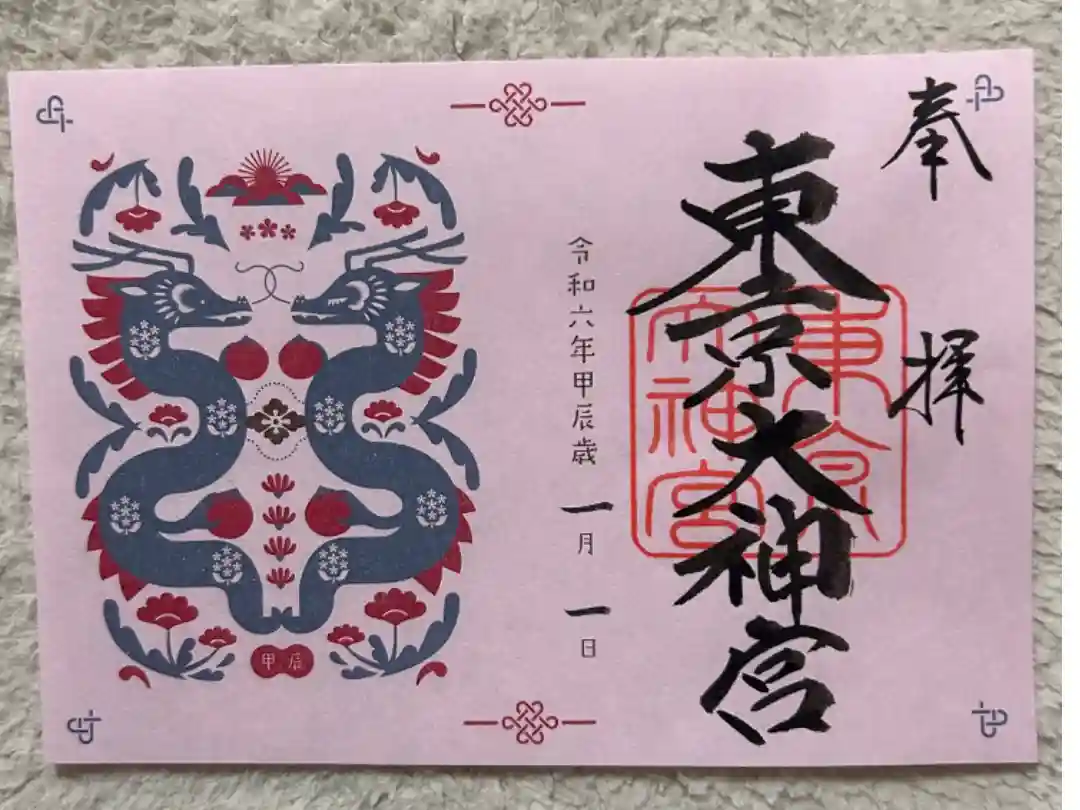 奉拝
東京大神宮
東京大神宮
令和六年甲辰歳一月一日
甲辰